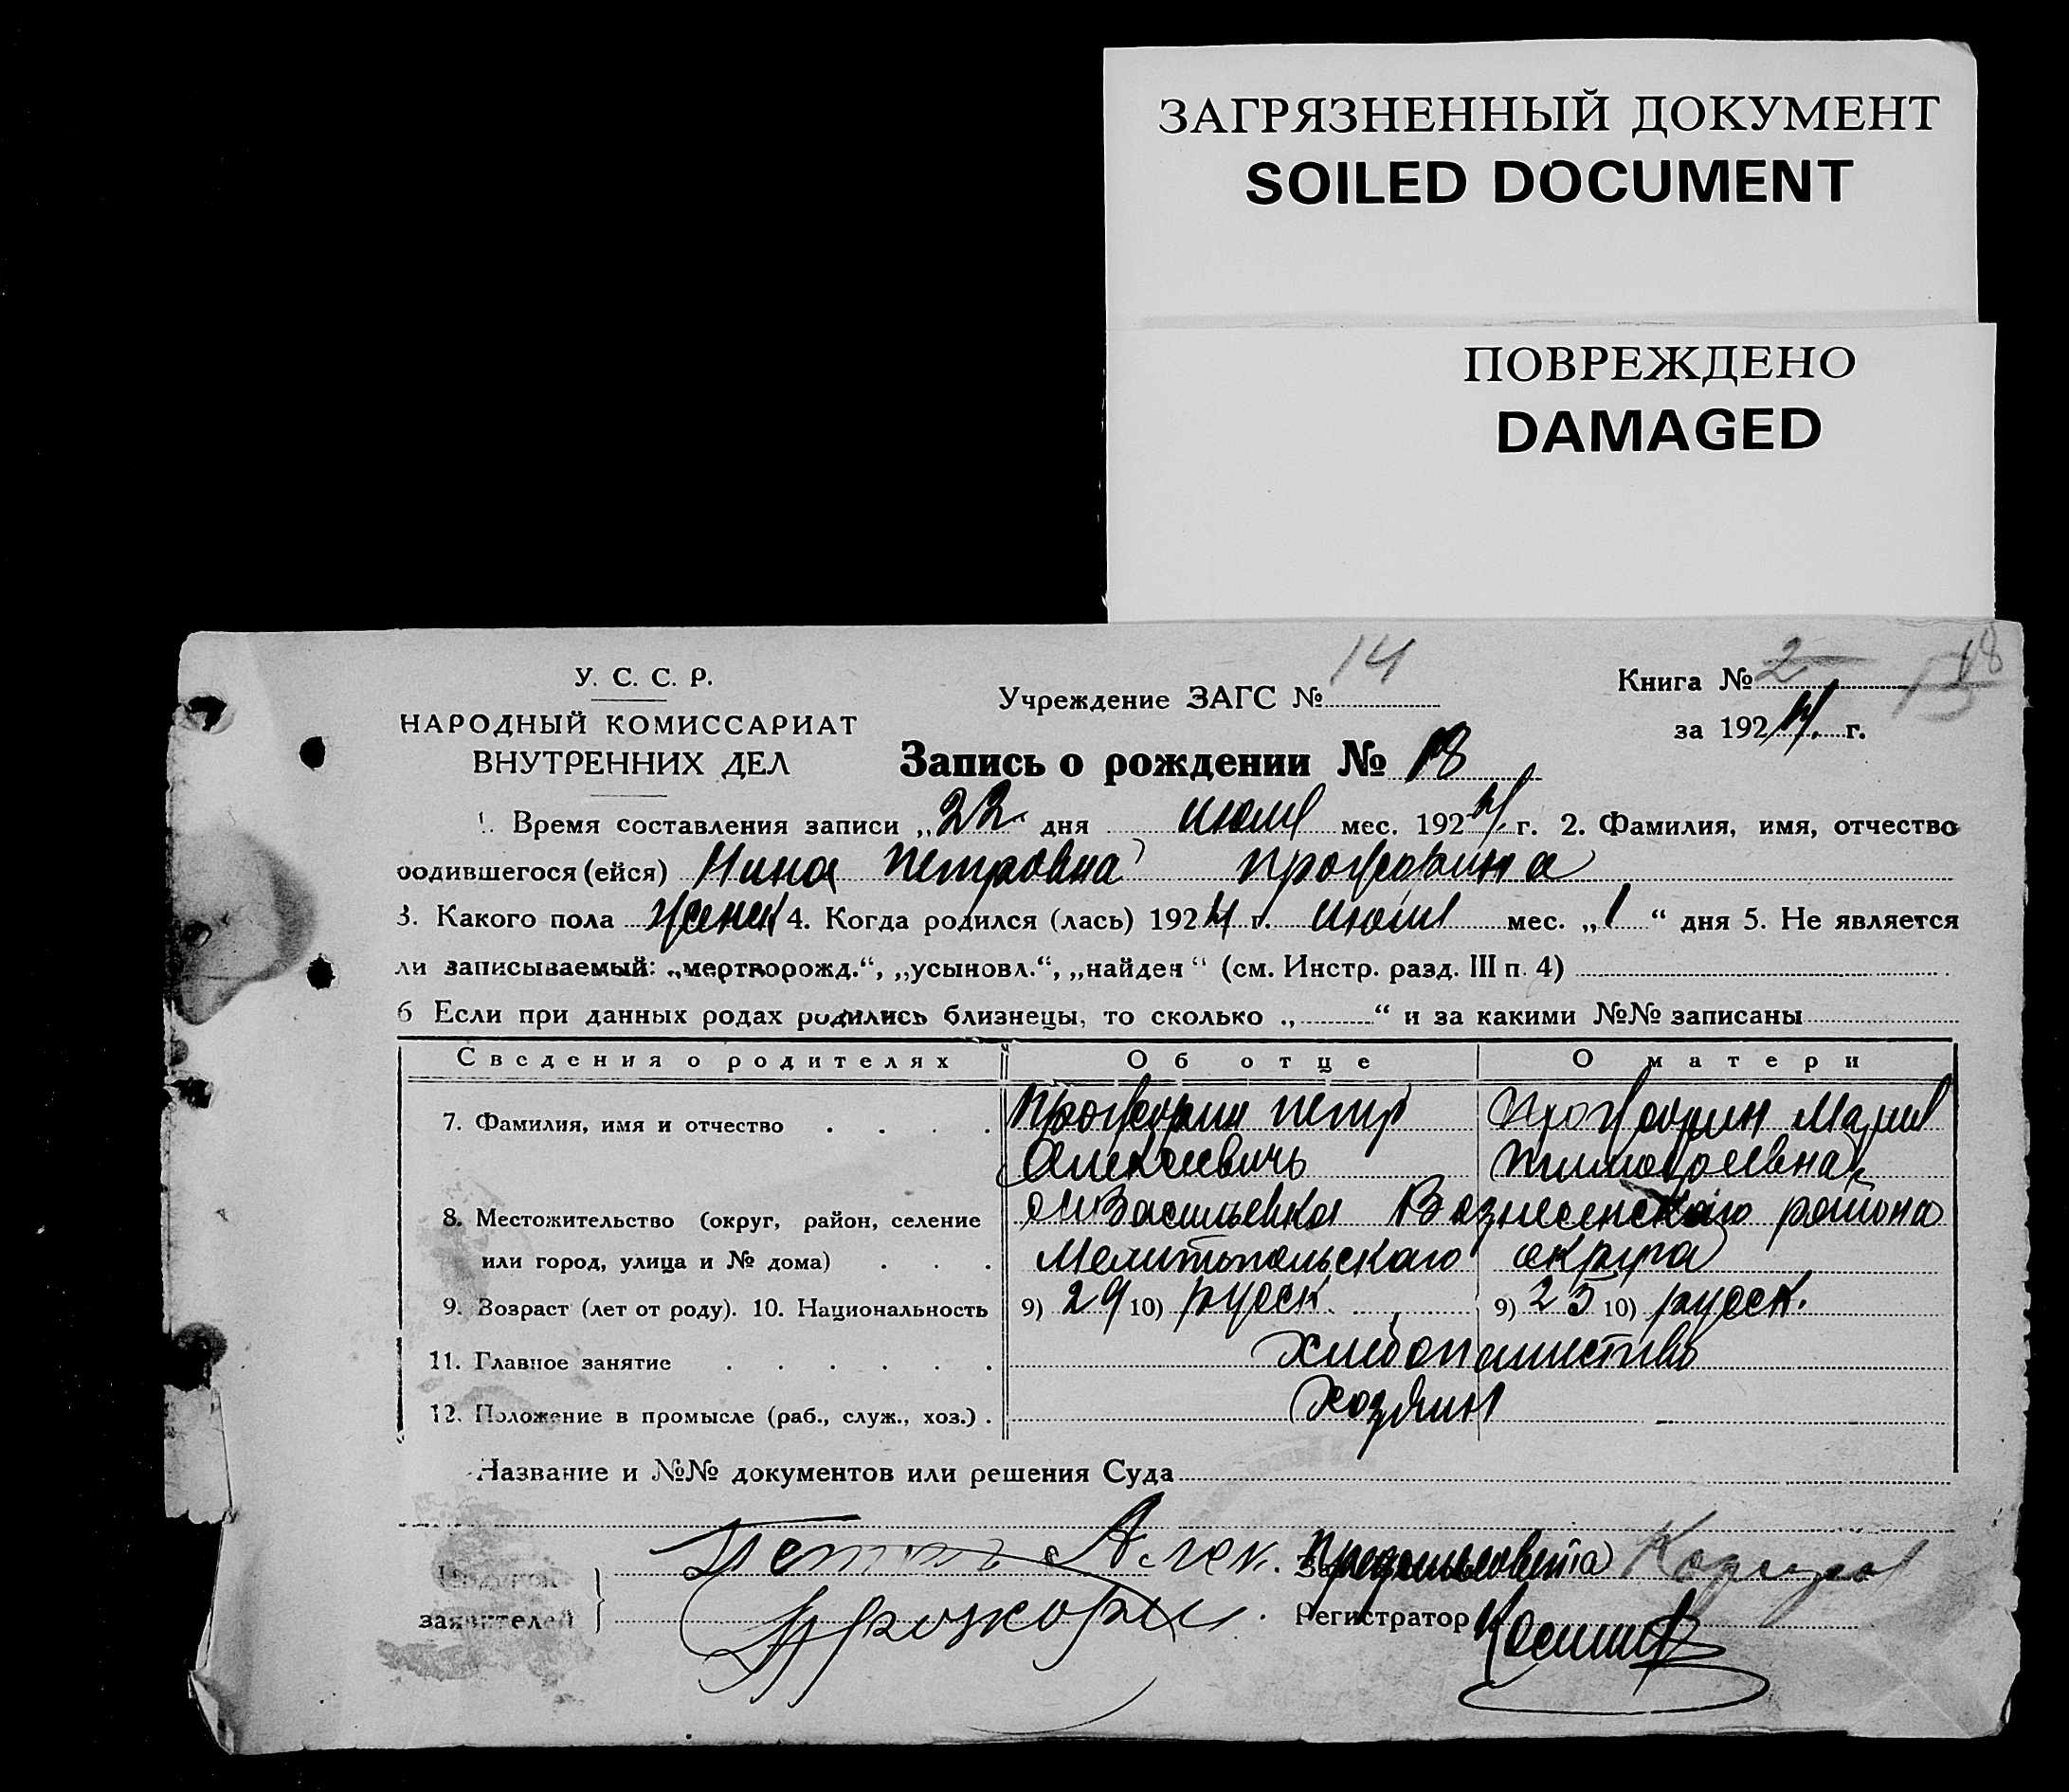 ЗАГРЯЗНЕННЫЙ ДОКУМЕНТ
SOILED DOCUMENT
ПОВРЕЖДЕНО
DAMAGED
У. С. С. Р.
НАРОДНЫЙ КОМИССАРИАТ
ВНУТРЕННИХ ДЕЛ
Учреждение ЗАГС № 14
Книга № 2 18
за 1924 г.
Запись о рождении № 18
1. Время составления записи „22 дня июля мес. 1924 г. 2. Фамилия, имя, отчество
родившегося (ейся) Нина Петровна
3. Какого пола женск 4. Когда родился (лась) 1924 г. июля мес. „1“ дня 5. Не является
ли записываемый: „мертворожд.“, „усыновл.“, „найден“ (см. Инстр. разд. III п. 4)
6 Если при данных родах родились близнецы, то сколько „ “ и за какими №№ записаны
Сведения о родителях Об отце О матери
7. Фамилия, имя и отчество Петр Мария
Алексеевичь Тимофеевна
8. Местожительство (округ, район, селение Васильевка Вознесенского района
или город, улица и № дома) Мелитопольского округа
9. Возраст (лет от роду). 10. Национальность 9) 29 10) русск. 9) 25 10) русск.
11. Главное занятие хлебопашество
12. Положение в промысле (раб., служ., хоз.) хозяин
Название и №№ документов или решения Суда
Петръ Алек. Предсельсовета
заявителей Регистратор